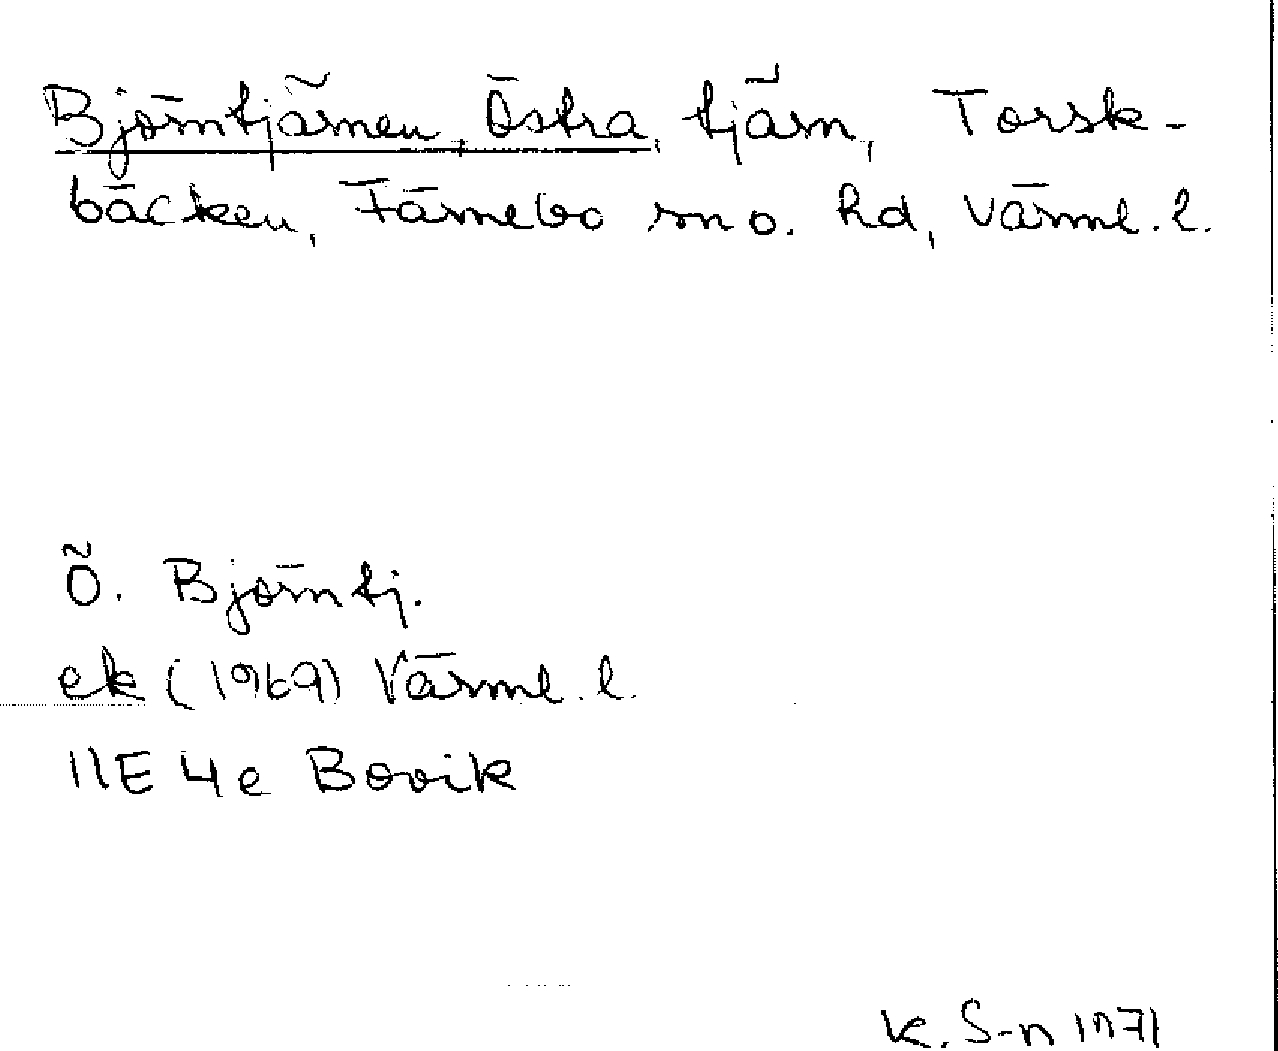 Björntjärnen, Östra, tjärn, Torsk-
bäcken, Färnebo sn o. hd, Värml. l.
Ö. Björntj.
ek (1969) Värml. l.
11E 4e Bovik
K. S-n 1971